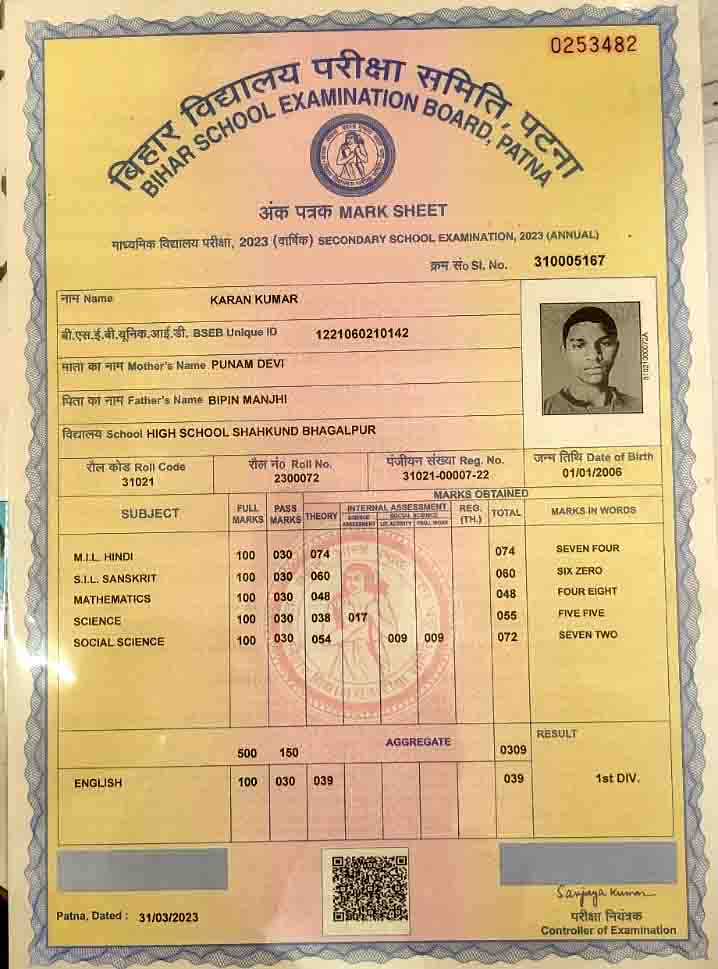 0253482
बिहार विद्यालय परीक्षा समिति, पटना
BIHAR SCHOOL EXAMINATION BOARD, PATNA
अंक पत्रक MARK SHEET
माध्यमिक विद्यालय परीक्षा, 2023 (वार्षिक) SECONDARY SCHOOL EXAMINATION, 2023 (ANNUAL)
क्रम सं० Sl. No. 310005167
नाम Name KARAN KUMAR
बी.एस.ई.बी.यूनिक.आई.डी. BSEB Unique ID 1221060210142
माता का नाम Mother's Name PUNAM DEVI
पिता का नाम Father's Name BIPIN MANJHI
विद्यालय School HIGH SCHOOL SHAHKUND BHAGALPUR
रौल कोड Roll Code रौल नं० Roll No. पंजीयन संख्या Reg. No. जन्म तिथि Date of Birth
31021 2300072 31021-00007-22 01/01/2006
SUBJECT FULL MARKS PASS MARKS MARKS OBTAINED MARKS IN WORDS
THEORY INTERNAL ASSESSMENT REG. (TH.) TOTAL
SCIENCE SOCIAL SCIENCE
ASSESSMENT LIT. ACTIVITY PROJ. WORK
M.I.L. HINDI 100 030 074 074 SEVEN FOUR
S.I.L. SANSKRIT 100 030 060 060 SIX ZERO
MATHEMATICS 100 030 048 048 FOUR EIGHT
SCIENCE 100 030 038 017 055 FIVE FIVE
SOCIAL SCIENCE 100 030 054 009 009 072 SEVEN TWO
500 150 AGGREGATE 0309 RESULT
ENGLISH 100 030 039 039 1st DIV.
Sanjaya Kumar
Patna, Dated : 31/03/2023
परीक्षा नियंत्रक
Controller of Examination